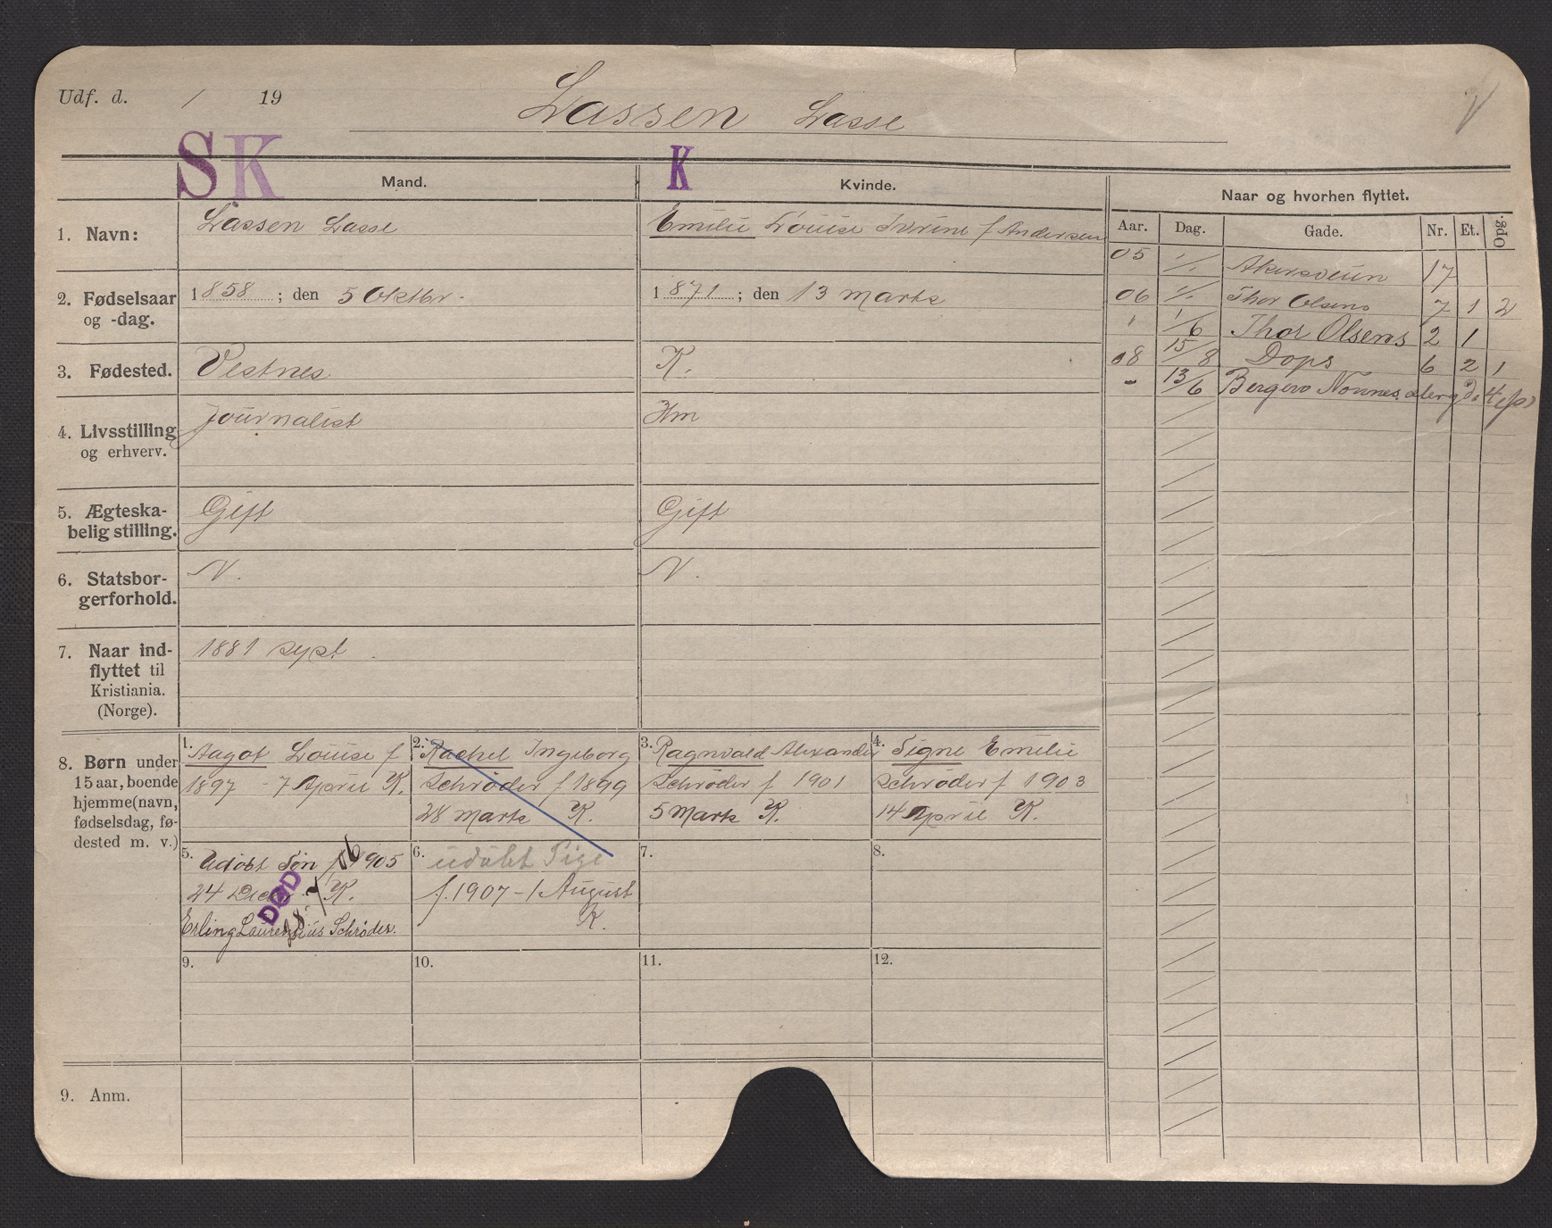 Udf. d. / 19
Lassen Lasse
V
S K
K
Mand.
Kvinde.
Naar og hvorhen flyttet.
Aar. Dag. Gade. Nr. Et. Opg.
1. Navn:
Lassen Lasse
Emilie Louise f Andersen
2. Fødselsaar
og -dag.
1858 ; den 5 Oktbr.
1871 ; den 13 Marts
3. Fødested.
Vestnes
K.
4. Livsstilling
og erhverv.
Journalist
Hm
5. Ægteska-
belig stilling.
Gift
Gift
6. Statsbor-
gerforhold.
N.
N.
7. Naar ind-
flyttet til
Kristiania.
(Norge).
1881 sypt
05 1/1 Akersveien 17
06 1/1 Thor Olsens 7 1 2
1/6 Thor Olsens 2 1
08 15/8 Dops 6 2 1
- 13/6
8. Børn under
15 aar, boende
hjemme (navn,
fødselsdag, fø-
dested m. v.)
1. Aagot Louise f
1897 - 7 April K.
2. Rachel Ingeborg
Schrøder f 1899
28 Marts K.
3. Ragnvald Alexander
Schrøder f 1901
5 Marts K.
4. Signe Emilie
Schrøder f 1903
14 April K.
5. Udøbt Søn f 1905
24 Dec K.
Erling Laurentius Schrøder.
DØD
6. udøbt Pige
f. 1907 - 1 August
K.
7.
8.
9.
10.
11.
12.
9. Anm.